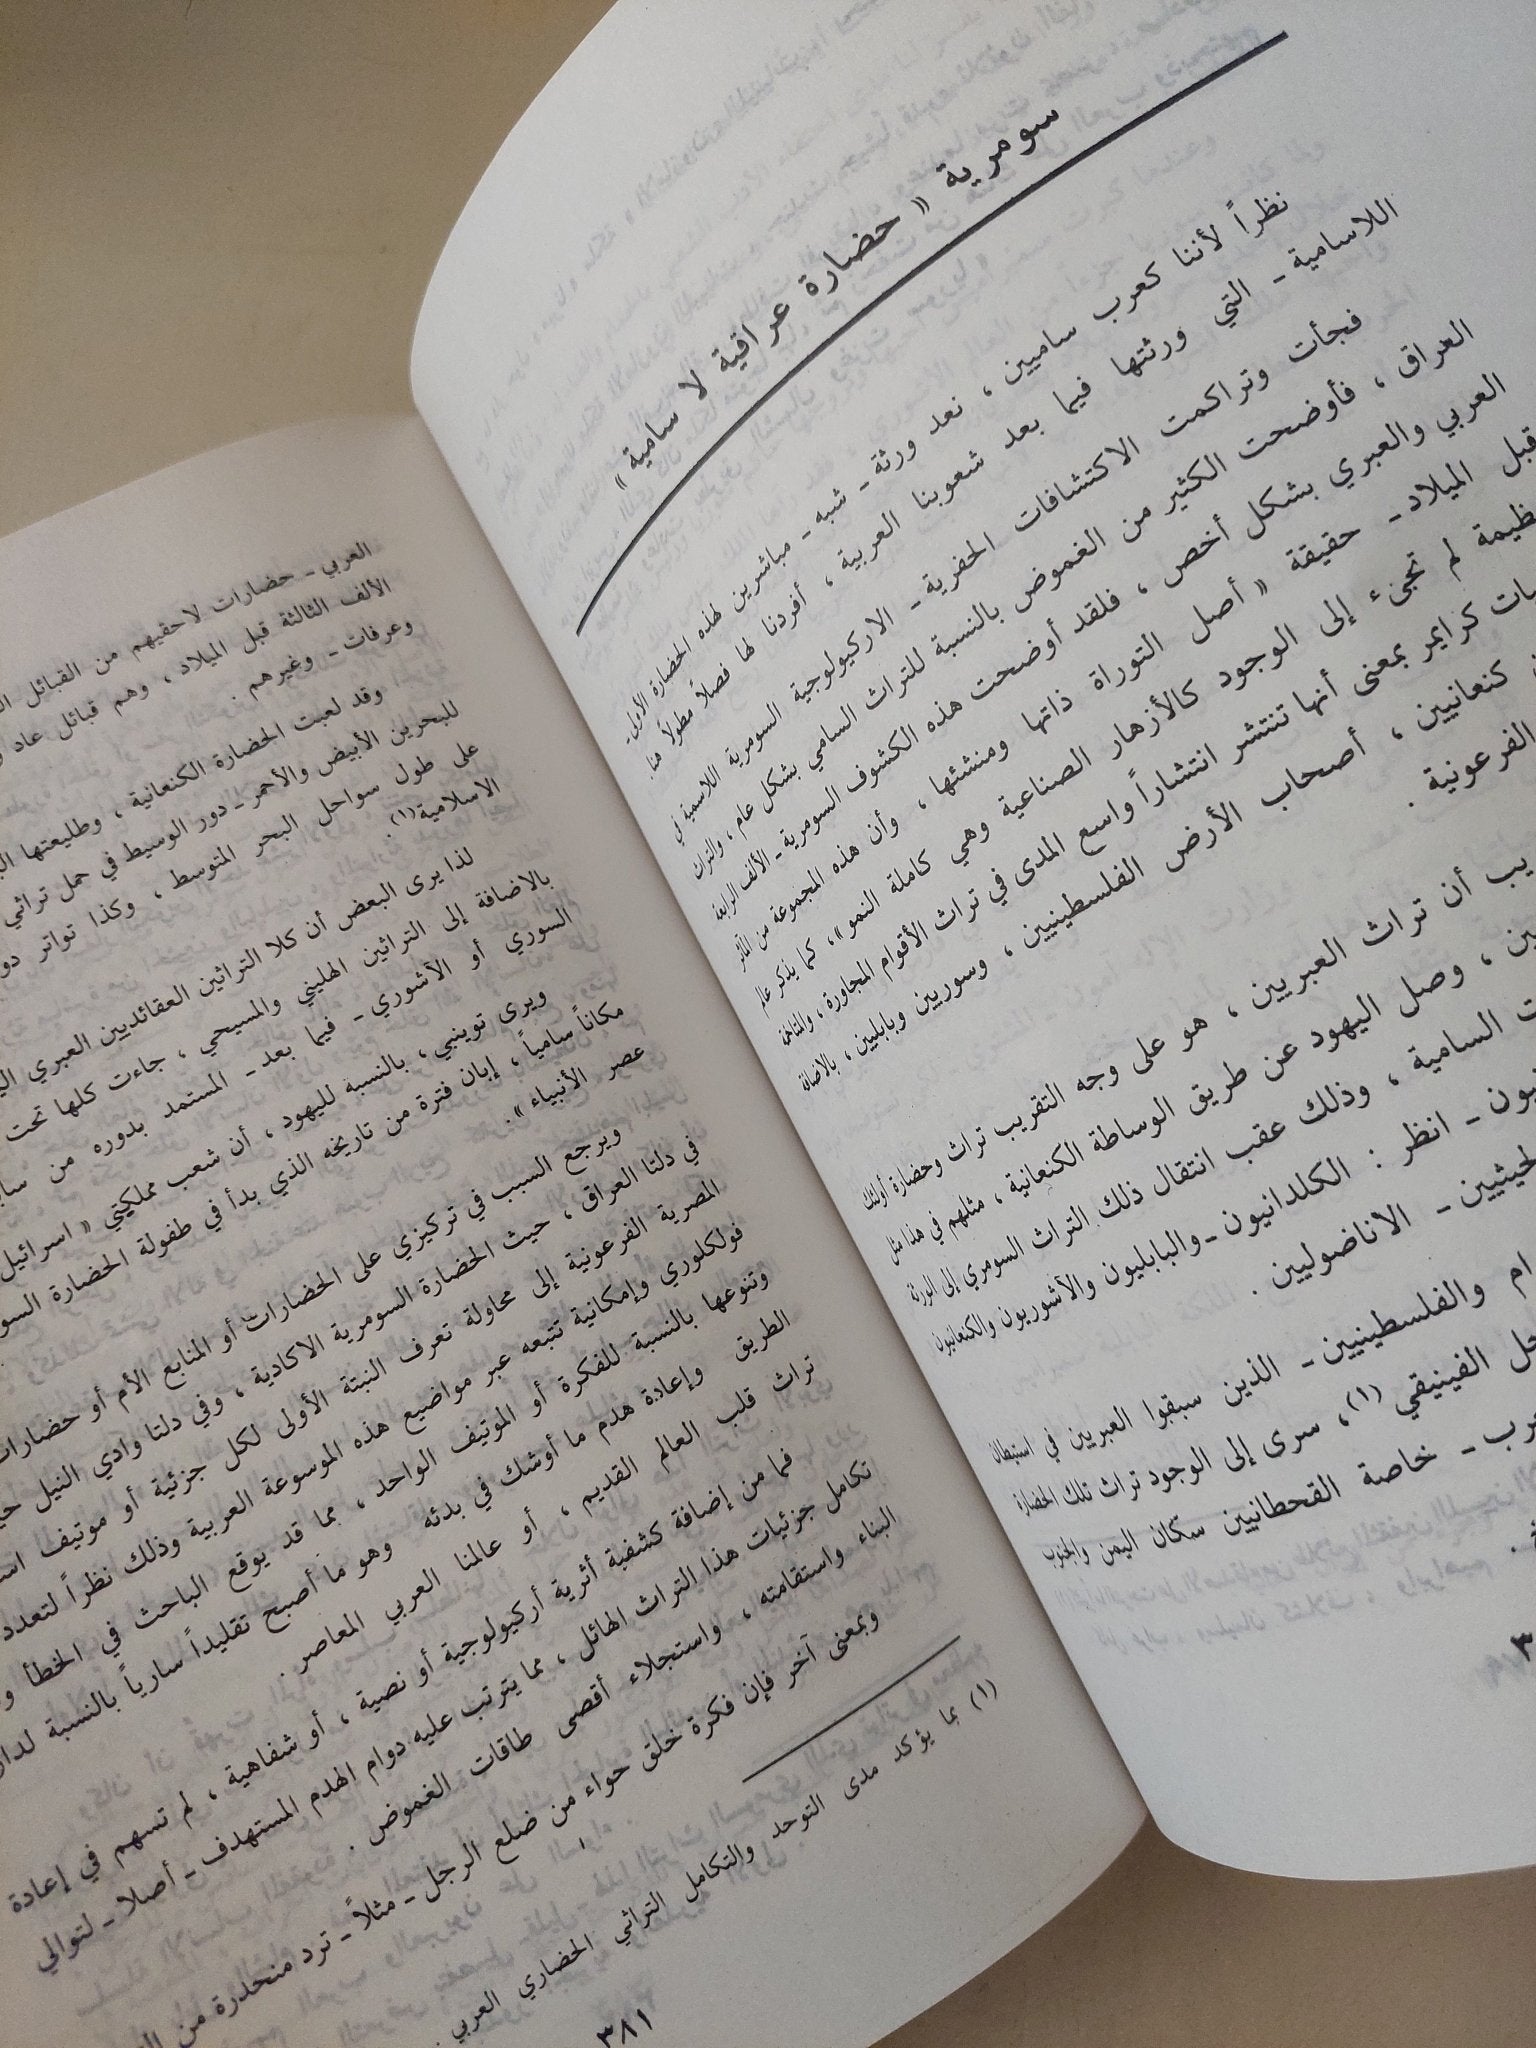 سومرية « حضارة عراقية لا سامية »
نظراً لأننا كعرب ساميين ، نعد ورثة ـ شبه ـ مباشرين لهذه الحضارة الأولى ـ
اللاسامية ـ التي ورثتها فيما بعد شعوبنا العربية ، أفردنا لها فصلاً مطولاً هنا .
فجأت وتراكمت الاكتشافات الحفرية ـ الاركيولوجية السومرية اللاسمية في
العراق ، فأوضحت الكثير من الغموض بالنسبة للتراث السامي بشكل عام ، والتراث
العربي والعبري بشكل أخص ، فلقد أوضحت هذه الكشوف السومرية ـ الألف الرابعة
قبل الميلاد ـ حقيقة « أصل التوراة ذاتها ومنشئها ، وأن هذه المجموعة من المآثر
لم تجىء إلى الوجود كالأزهار الصناعية وهي كاملة النمو » ، كما يذكر عالم
كرايمر بمعنى أنها تنتشر انتشاراً واسع المدى في تراث الأقوام المجاورة ، والمتاخمة
كنعانيين ، أصحاب الأرض الفلسطينيين ، وسوريين وبابليين ، بالاضافة
الفرعونية .
أن تراث العبريين ، هو على وجه التقريب تراث وحضارة أولئك
، وصل اليهود عن طريق الوساطة الكنعانية ، مثلهم في هذا مثل
السامية ، وذلك عقب انتقال ذلك التراث السومري إلى الورثة
ـ انظر : الكلدانيون ـ والبابليون والأشوريون والكنعانيون
ـ الاناضوليين .
والفلسطينيين ـ الذين سبقوا العبريين في استيطان
الفينيقي (١) ، سرى إلى الوجود تراث تلك الحضارة
ـ خاصة القحطانيين سكان اليمن والجنوب
العربي ـ حضارات لاحقيهم من القبائل
الألف الثالثة قبل الميلاد ، وهم قبائل عاد
وعرفات ـ وغيرهم .
وقد لعبت الحضارة الكنعانية ، وطليعتها
للبحرين الأبيض والأحمر ـ دور الوسيط في حمل تراثي
على طول سواحل البحر المتوسط ، وكذا تواتر
الاسلامية (١) .
لذا يرى البعض أن كلا التراثين العقائديين العبري
بالاضافة إلى التراثين الهليني والمسيحي ، جاءت كلها تحت
السوري أو الأشوري ـ فيما بعد ـ المستمد بدوره من
ويرى توينبي ، بالنسبة لليهود ، أن شعب مملكتي « اسرائيل
مكاناً سامياً ، إبان فترة من تاريخه الذي بدأ في طفولة الحضارة
عصر الأنبياء » .
ويرجع السبب في تركيزي على الحضارات أو المنابع الأم أو حضارات
في دلتا العراق ، حيث الحضارة السومرية الاكادية ، وفي دلتا وادي النيل
المصرية الفرعونية إلى محاولة تعرف النبتة الأولى لكل جزئية أو موتيف
فولكلوري وإمكانية تتبعه عبر مواضيع هذه الموسوعة العربية وذلك نظراً لتعدد
وتنوعها بالنسبة للفكرة أو الموتيف الواحد ، مما قد يوقع الباحث في الخطأ
الطريق وإعادة هدم ما أوشك في بدئه وهو ما أصبح تقليداً سارياً بالنسبة
تراث قلب العالم القديم ، أو عالمنا العربي المعاصر .
فما من إضافة كشفية أثرية أركيولوجية أو نصية ، أو شفاهية ، لم تسهم في إعادة
تكامل جزئيات هذا التراث الهائل ، مما يترتب عليه دوام الهدم المستهدف ـ أصلا ـ لتوالي
البناء واستقامته ، واستجلاء أقصى طاقات الغموض .
وبمعنى آخر فإن فكرة خلق حواء من ضلع الرجل ـ مثلاً ـ ترد منحدرة من
(١) بما يؤكد مدى التوحد والتكامل التراثي الحضاري العربي .
٣٨١